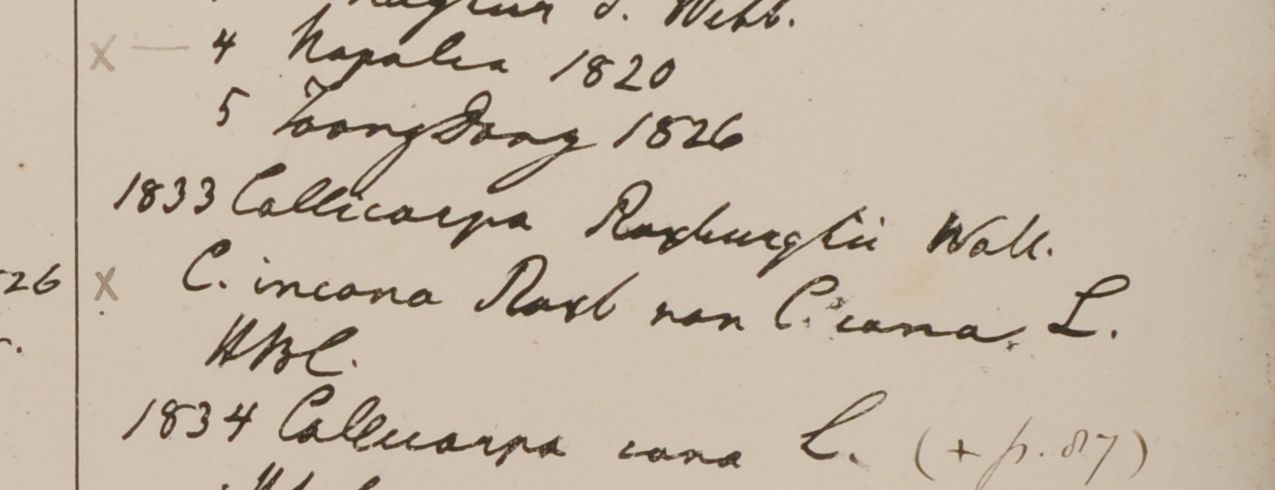 J. Webb.
x — 4 Napalia 1820
5 Toong Dong 1826
1833 Callicarpa Roxburghii Wall.
26 x C. incana Roxb non C. cana L.
HBC.
1834 Callicarpa cana L. (+ p. 87)